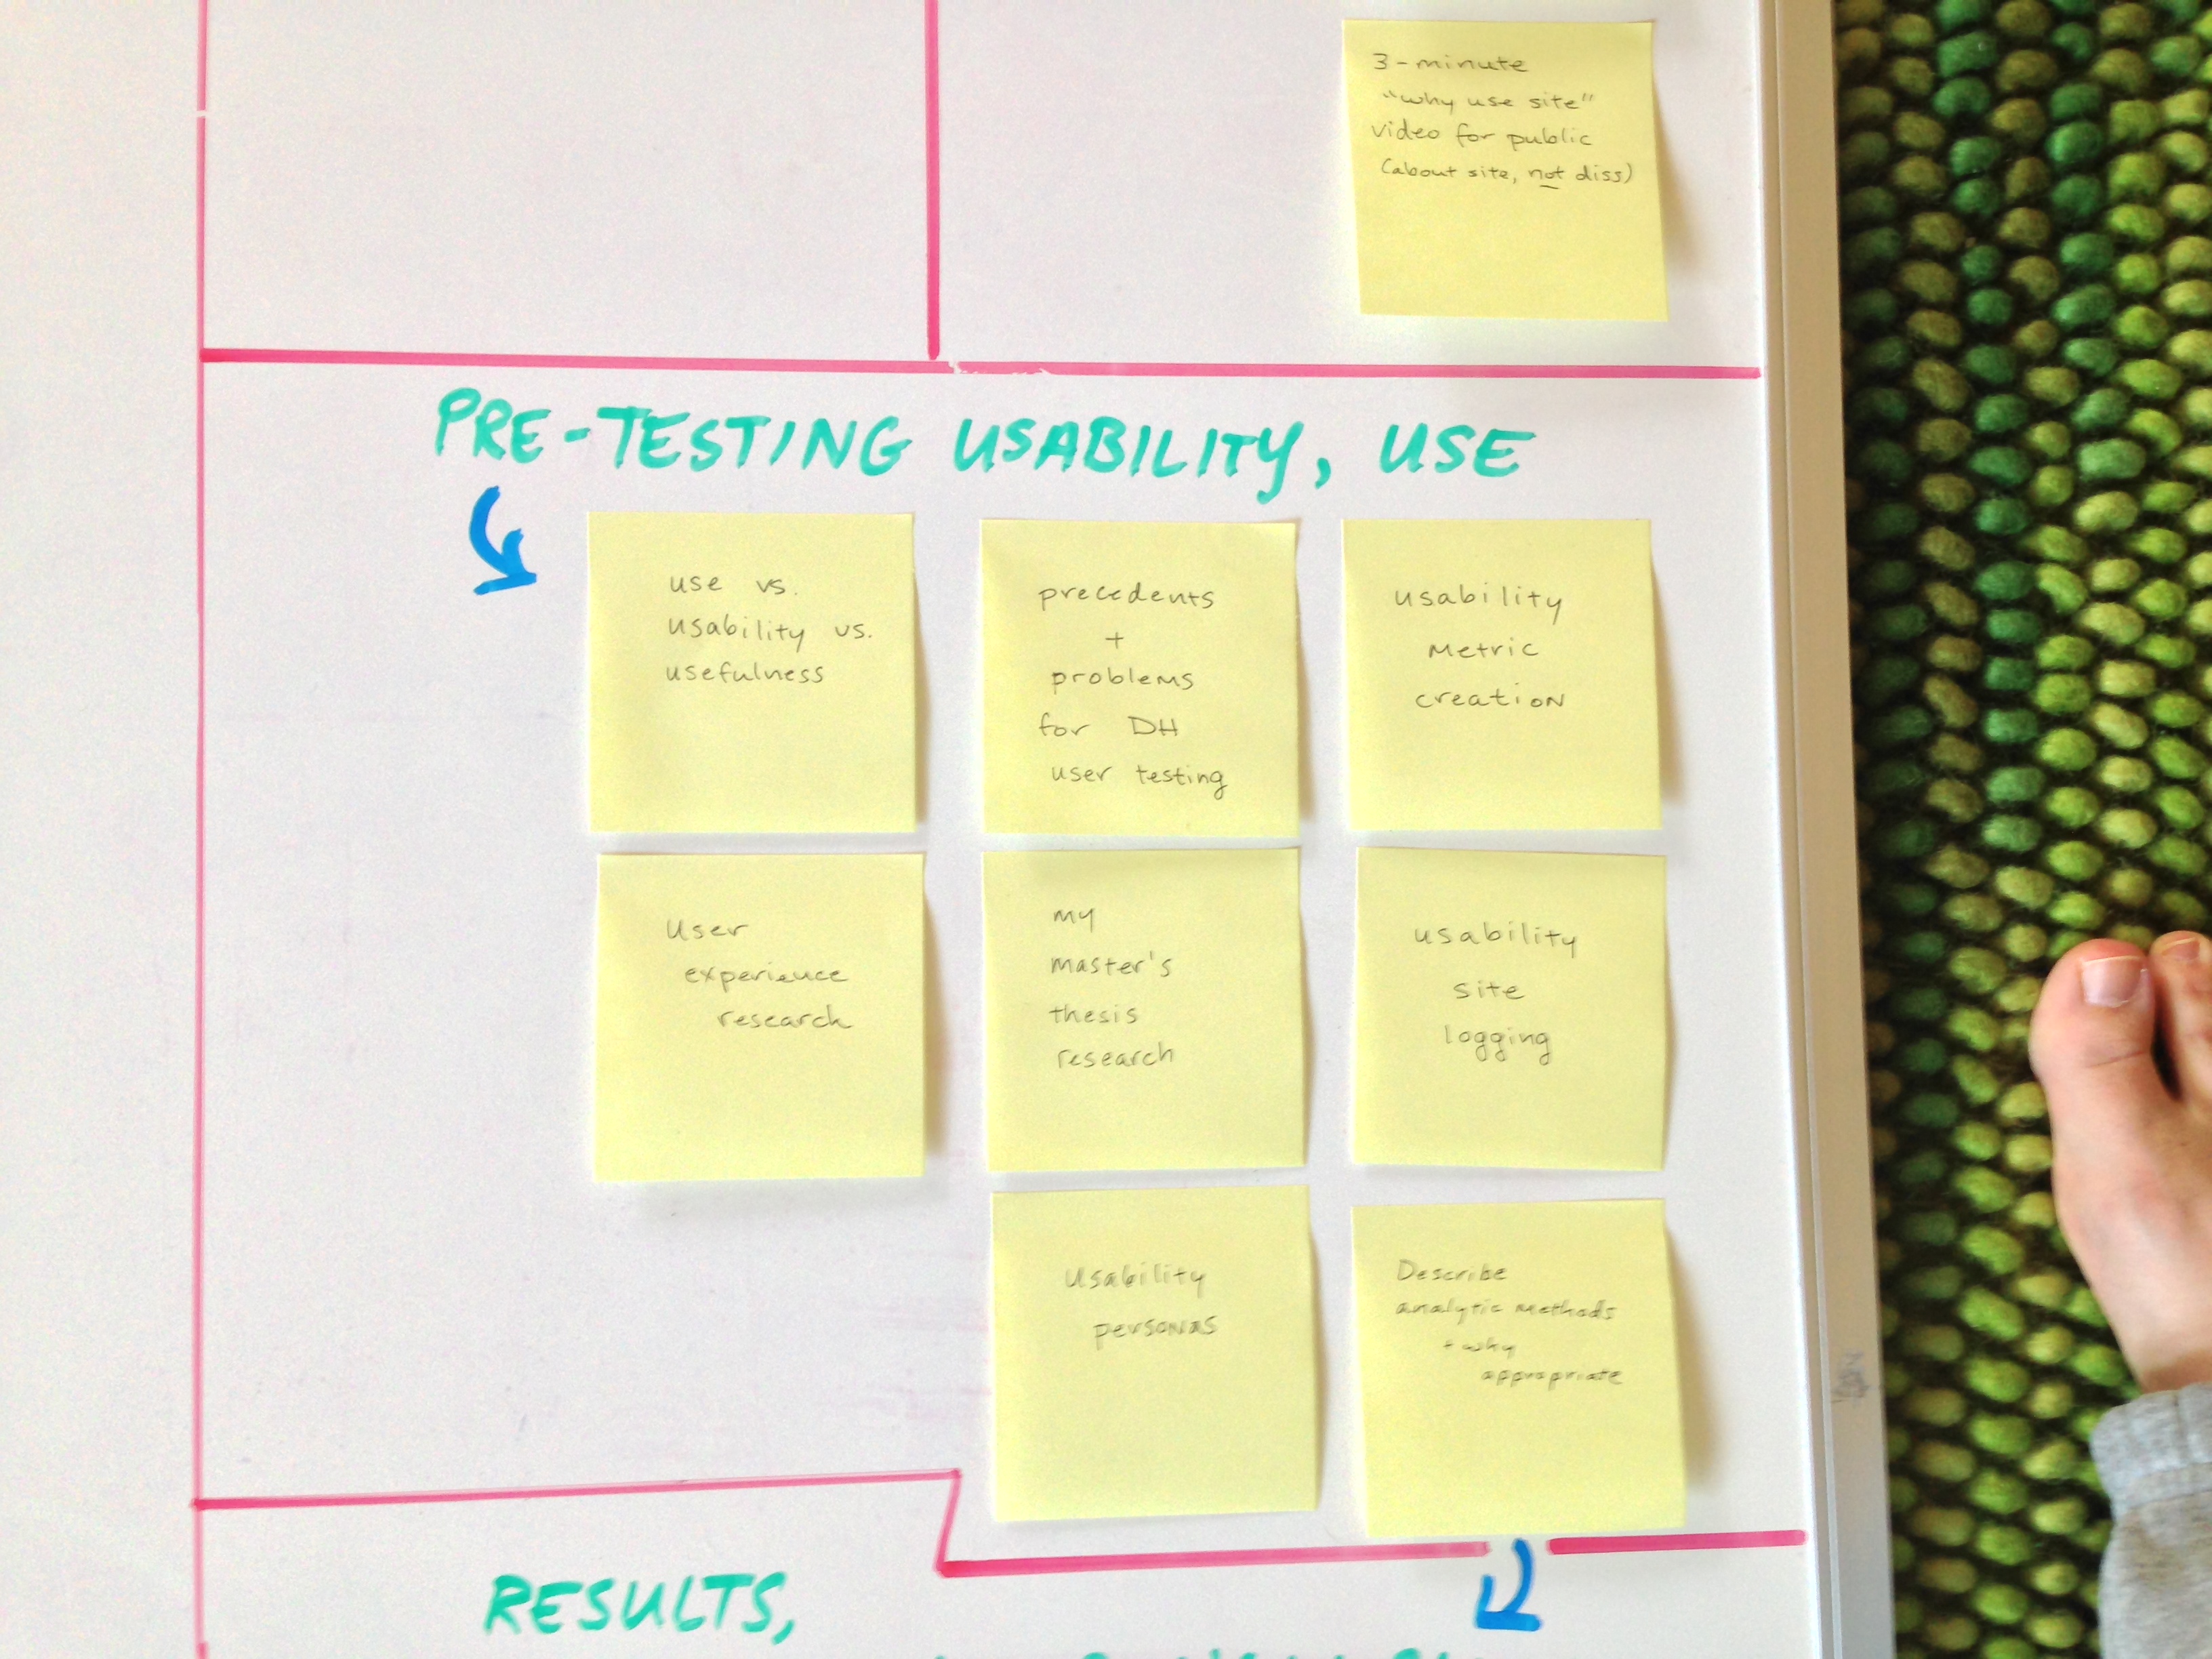 3-minute
"why use site"
video for public
(about site, not diss)
PRE-TESTING USABILITY, USE
use vs.
usability vs.
usefulness
precedents
+
problems
for DH
user testing
usability
metric
creation
User
experience
research
my
master's
thesis
research
usability
site
logging
Usability
personas
Describe
analytic methods
+ why
appropriate
RESULTS,